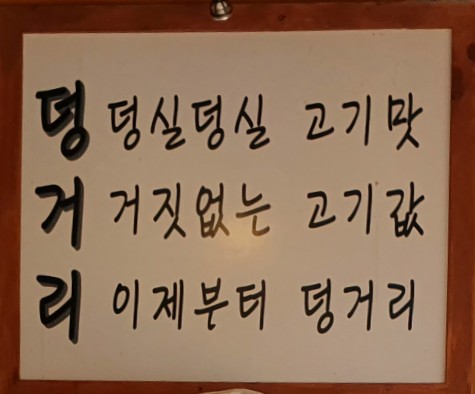 덩 덩실덩실 고기맛
거 거짓없는 고기값
리 이제부터 덩거리